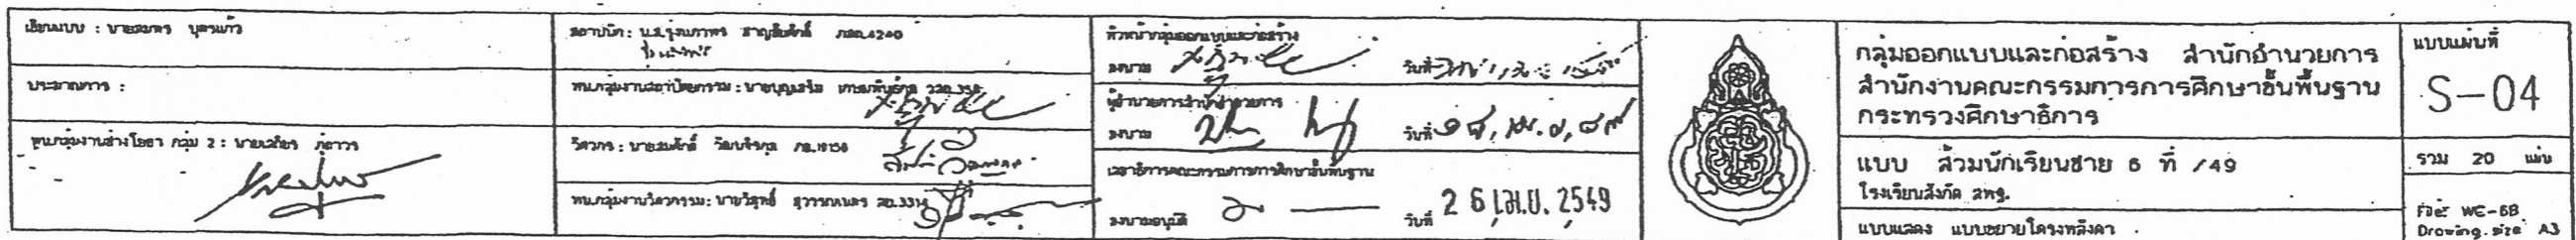 เขียนแบบ : นายสมพร บุตรแก้ว
ประมาณการ :
หน.กลุ่มงานช่างโยธา กลุ่ม 2 : นายเสถียร
สถาปนิก : น.ส.รุ่งนภาพร ภสถ.4240
หน.กลุ่มงานสถาปัตยกรรม : นายบุญเสริม
วิศวกร : นายสมศักดิ์
หน.กลุ่มงานวิศวกรรม : นายวิสุทธิ์ สุวรรณเนตร สย.3314
หัวหน้ากลุ่มออกแบบและก่อสร้าง
ลงนาม วันที่
ผู้อำนวยการสำนักอำนวยการ
ลงนาม วันที่ ๑๙, เม.ย, ๔๙
เลขาธิการคณะกรรมการการศึกษาขั้นพื้นฐาน
ลงนามอนุมัติ วันที่ 2 6 เม.ย. 2549
กลุ่มออกแบบและก่อสร้าง สำนักอำนวยการ
สำนักงานคณะกรรมการการศึกษาขั้นพื้นฐาน
กระทรวงศึกษาธิการ
แบบ ส้วมนักเรียนชาย 6 ที่ /49
โรงเรียนสังกัด สพฐ.
แบบแสดง แบบขยายโครงหลังคา
แบบแผ่นที่
S-04
รวม 20 แผ่น
File: WC-6B
Drawing. size A3